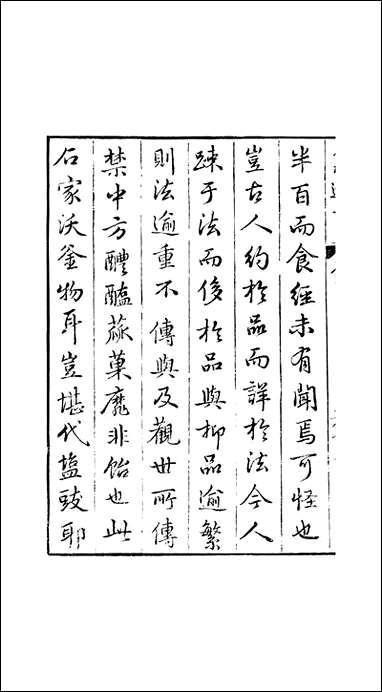 半百而食經未有聞焉可怪也
豈古人約於品而詳於法今人
踈于法而侈於品與抑品逾繁
則法逾重不傳與及觀世所傳
禁中方醴醢蔬菓靡非飴也此
石家沃釜物耳豈堪代塩豉耶